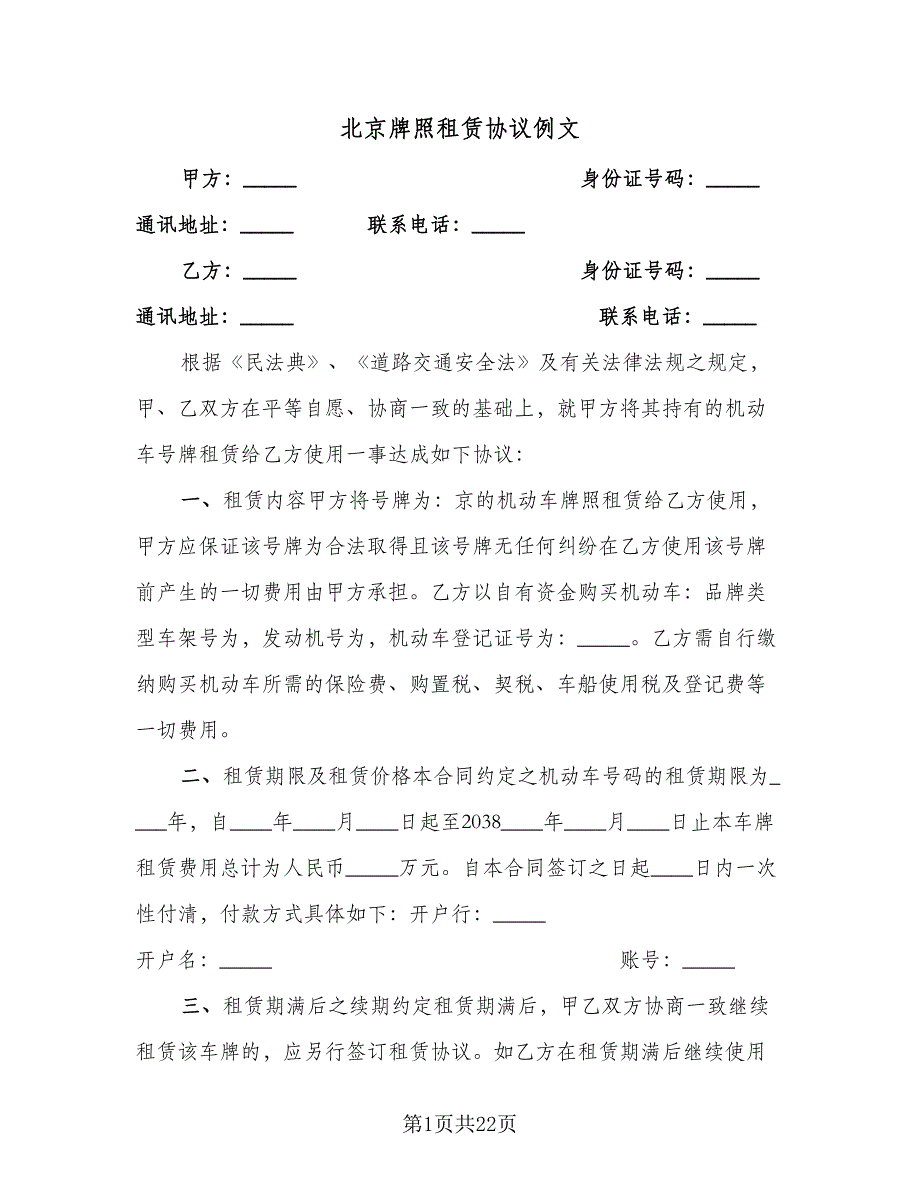 北京牌照租赁协议例文
甲方：_____ 身份证号码：_____
通讯地址：_____ 联系电话：_____
乙方：_____ 身份证号码：_____
通讯地址：_____ 联系电话：_____
根据《民法典》、《道路交通安全法》及有关法律法规之规定，
甲、乙双方在平等自愿、协商一致的基础上，就甲方将其持有的机动
车号牌租赁给乙方使用一事达成如下协议：
一、租赁内容甲方将号牌为：京的机动车牌照租赁给乙方使用，
甲方应保证该号牌为合法取得且该号牌无任何纠纷在乙方使用该号牌
前产生的一切费用由甲方承担。乙方以自有资金购买机动车：品牌类
型车架号为，发动机号为，机动车登记证号为：_____。乙方需自行缴
纳购买机动车所需的保险费、购置税、契税、车船使用税及登记费等
一切费用。
二、租赁期限及租赁价格本合同约定之机动车号码的租赁期限为_
___年，自____年____月____日起至2038____年____月____日止本车牌
租赁费用总计为人民币_____万元。自本合同签订之日起____日内一次
性付清，付款方式具体如下：开户行：_____
开户名：_____ 账号：_____
三、租赁期满后之续期约定租赁期满后，甲乙双方协商一致继续
租赁该车牌的，应另行签订租赁协议。如乙方在租赁期满后继续使用
第1页共22页